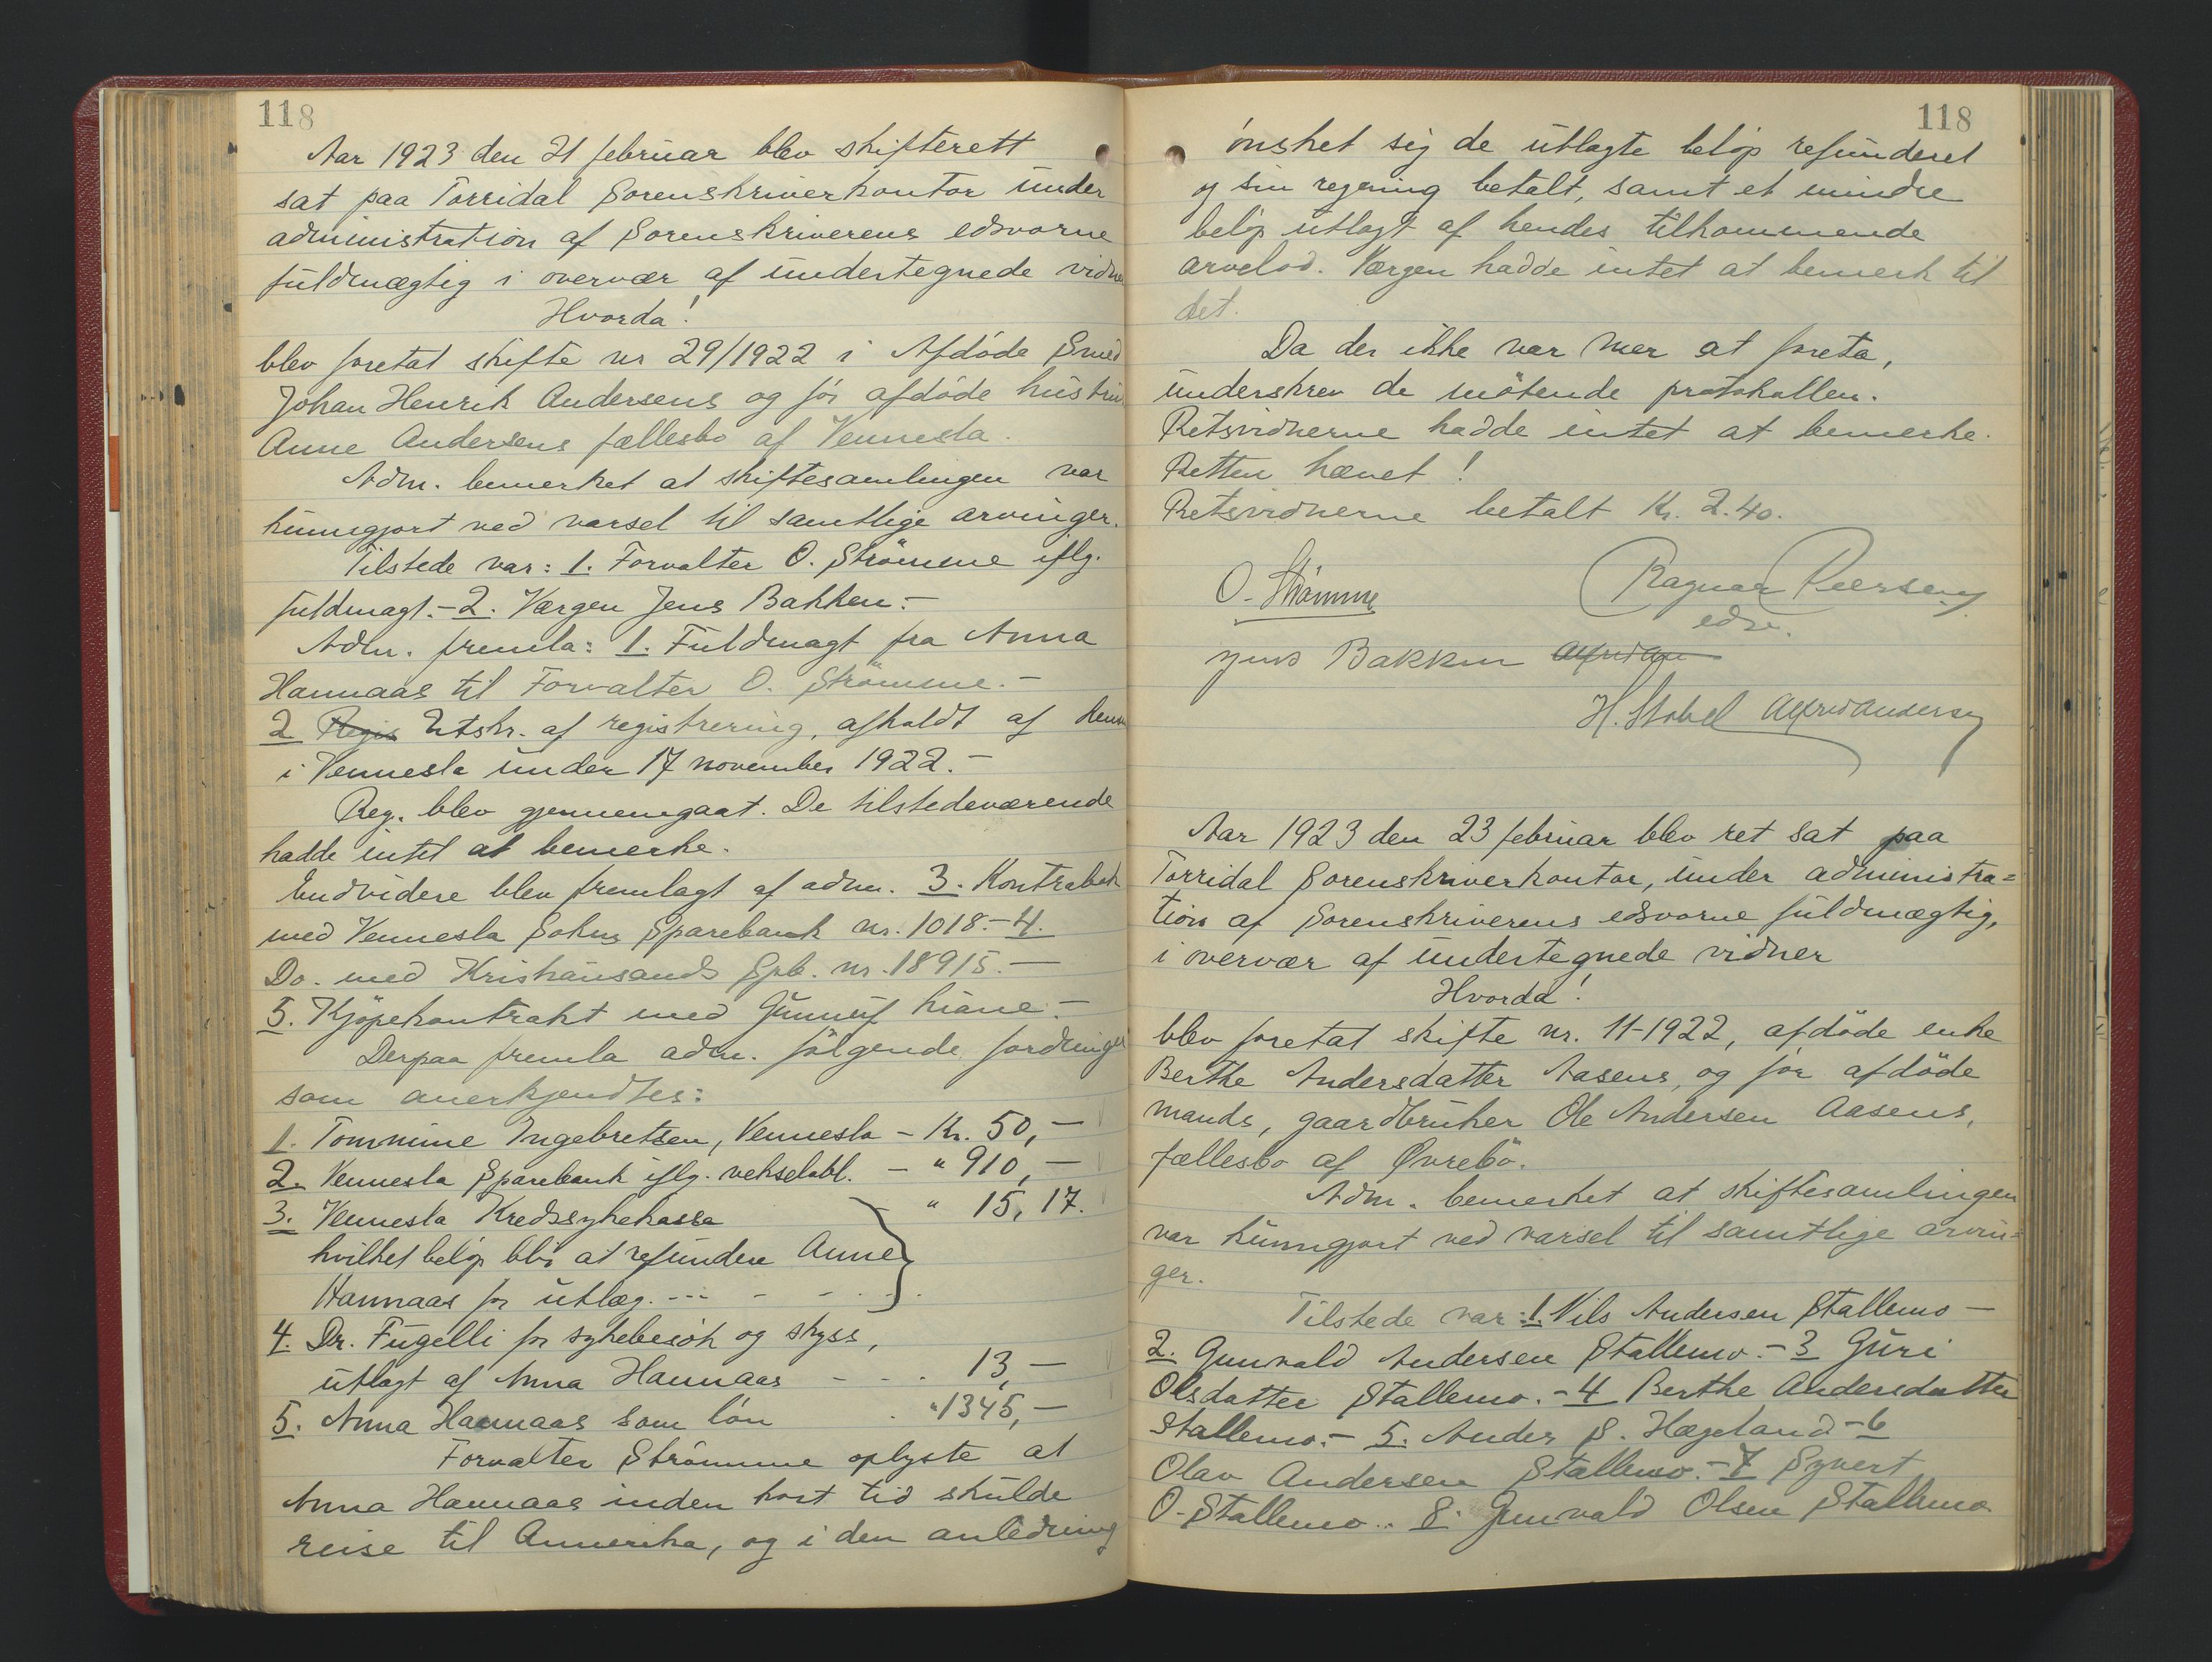 118
Aar 1923 den 21 februar blev skifterett
sat paa Torridal Sorenskriverkontor under
administration af Sorenskriverens edsvorne
fuldmægtig i overvær af undertegnede vidne
Hvorda!
blev foretat skifte nr 29/1922 i Afdöde Smed
Johan Henrik Andersens og för afdöde hustru
Anne Andersens fællesbo af Vennesla.
Adm. bemerket at skiftesamlingen var
kunngjort ved varsel til samtlige arvinger.
Tilstede var: 1. Forvalter O. Strömme iflg.
fuldmagt.- 2. Værgen Jens Bakken.-
Adm. fremla: 1. Fuldmagt fra Anna
Hannaas til Forvalter O. Strömme.-
2 Regis Utskr. af registrering, afholdt af lensm
i Vennesla under 17 november 1922.-
Reg. blev gjennemgaat. De tilstedeværende
hadde intet at bemerke.
Endvidere blev fremlagt af adm. 3. Kontrabok
med Vennesla Sokns Sparebank nr. 1018.- 4.
Do. med Kristiansands Spb. nr. 18915.-
5. Kjöpekontrakt med Gunnuf Liane.-
Derpaa fremla adm. fölgende fordringer
som anerkjendtes:
1. Tommine Ingebretsen, Vennesla - Kr. 50,-
2. Vennesla Sparebank iflg. vekselobl. - " 910,-
3. Vennesla Kredssykekasse - " 15,17.
hvilket belöp blir at refundere Anne
Hannaas for utlæg. --- - - . .
4. Dr. Fugelli for sykebesök og skyss,
utlagt af Anna Hannaas - - . 13,-
5. Anna Hannaas som lön . "1345,-
Forvalter Strömme oplyste at
Anna Hannaas inden kort tid skulde
reise til Amerika, og i den anledning
118
önsket sig de utlagte belöp refunderet
og sin regning betalt, samt et mindre
belöp utlagt af hendes tilkommende
arvelod. Værgen hadde intet at bemerk til
det.
Da der ikke var mer at foreta,
underskrev de mötende protokollen.
Retsvidnerne hadde intet at bemerke.
Retten hævet!
Retsvidnerne betalt Kr. 2.40.
O. Strømme Ragnar Peersen
edsv.
Jens Bakken
H. Stobel Alfred Andersen
Aar 1923 den 23 februar blev ret sat paa
Torridal Sorenskriverkontor, under administra=
tion af Sorenskriverens edsvorne fuldmægtig,
i overvær af undertegnede vidner
Hvorda!
blev foretat skifte nr. 11-1922, afdöde enke
Berthe Andersdatter Aasens, og för afdöde
mands, gaardbruker Ole Andersen Aasens,
fællesbo af Øvrebö.
Adm. bemerket at skiftesamlingen
var kunngjort ved varsel til samtlige arvin=
ger.
Tilstede var: 1. Nils Andersen Stallemo -
2. Gunvald Andersen Stallemo.- 3 Guri
Olsdatter Stallemo.- 4 Berthe Andersdatter
Stallemo.- 5. Anders S. Hægeland - 6
Olav Andersen Stallemo.- 7 Syvert
O. Stallemo.. 8. Gunvald Olsen Stallemo